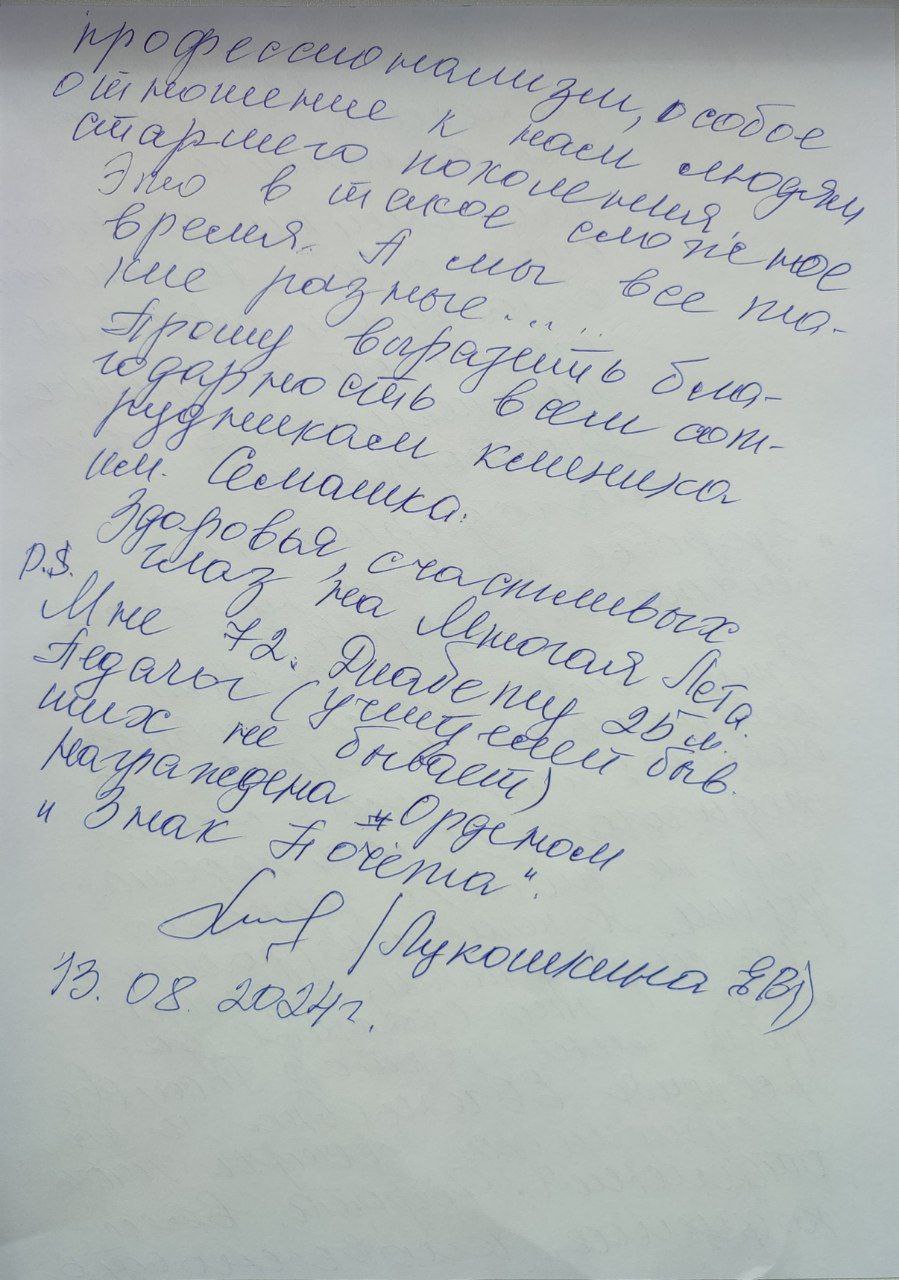 профессионализм, особое
отношение к нам людям
старшего поколения.
Это в такое сложное
время. А мы все та-
кие разные.....
Прошу выразить бла-
годарность всем сот-
рудникам клиники
им. Семашка.
Здоровья, счастливых
глаз на Многая Лета.
P.S.
Мне 72. Диабету 25 л.
Педагог (учителей быв.
ших не бывает)
награждена Орденом
"Знак Почёта".
/Лукошкина ЕВ/)
13.08.2024г.